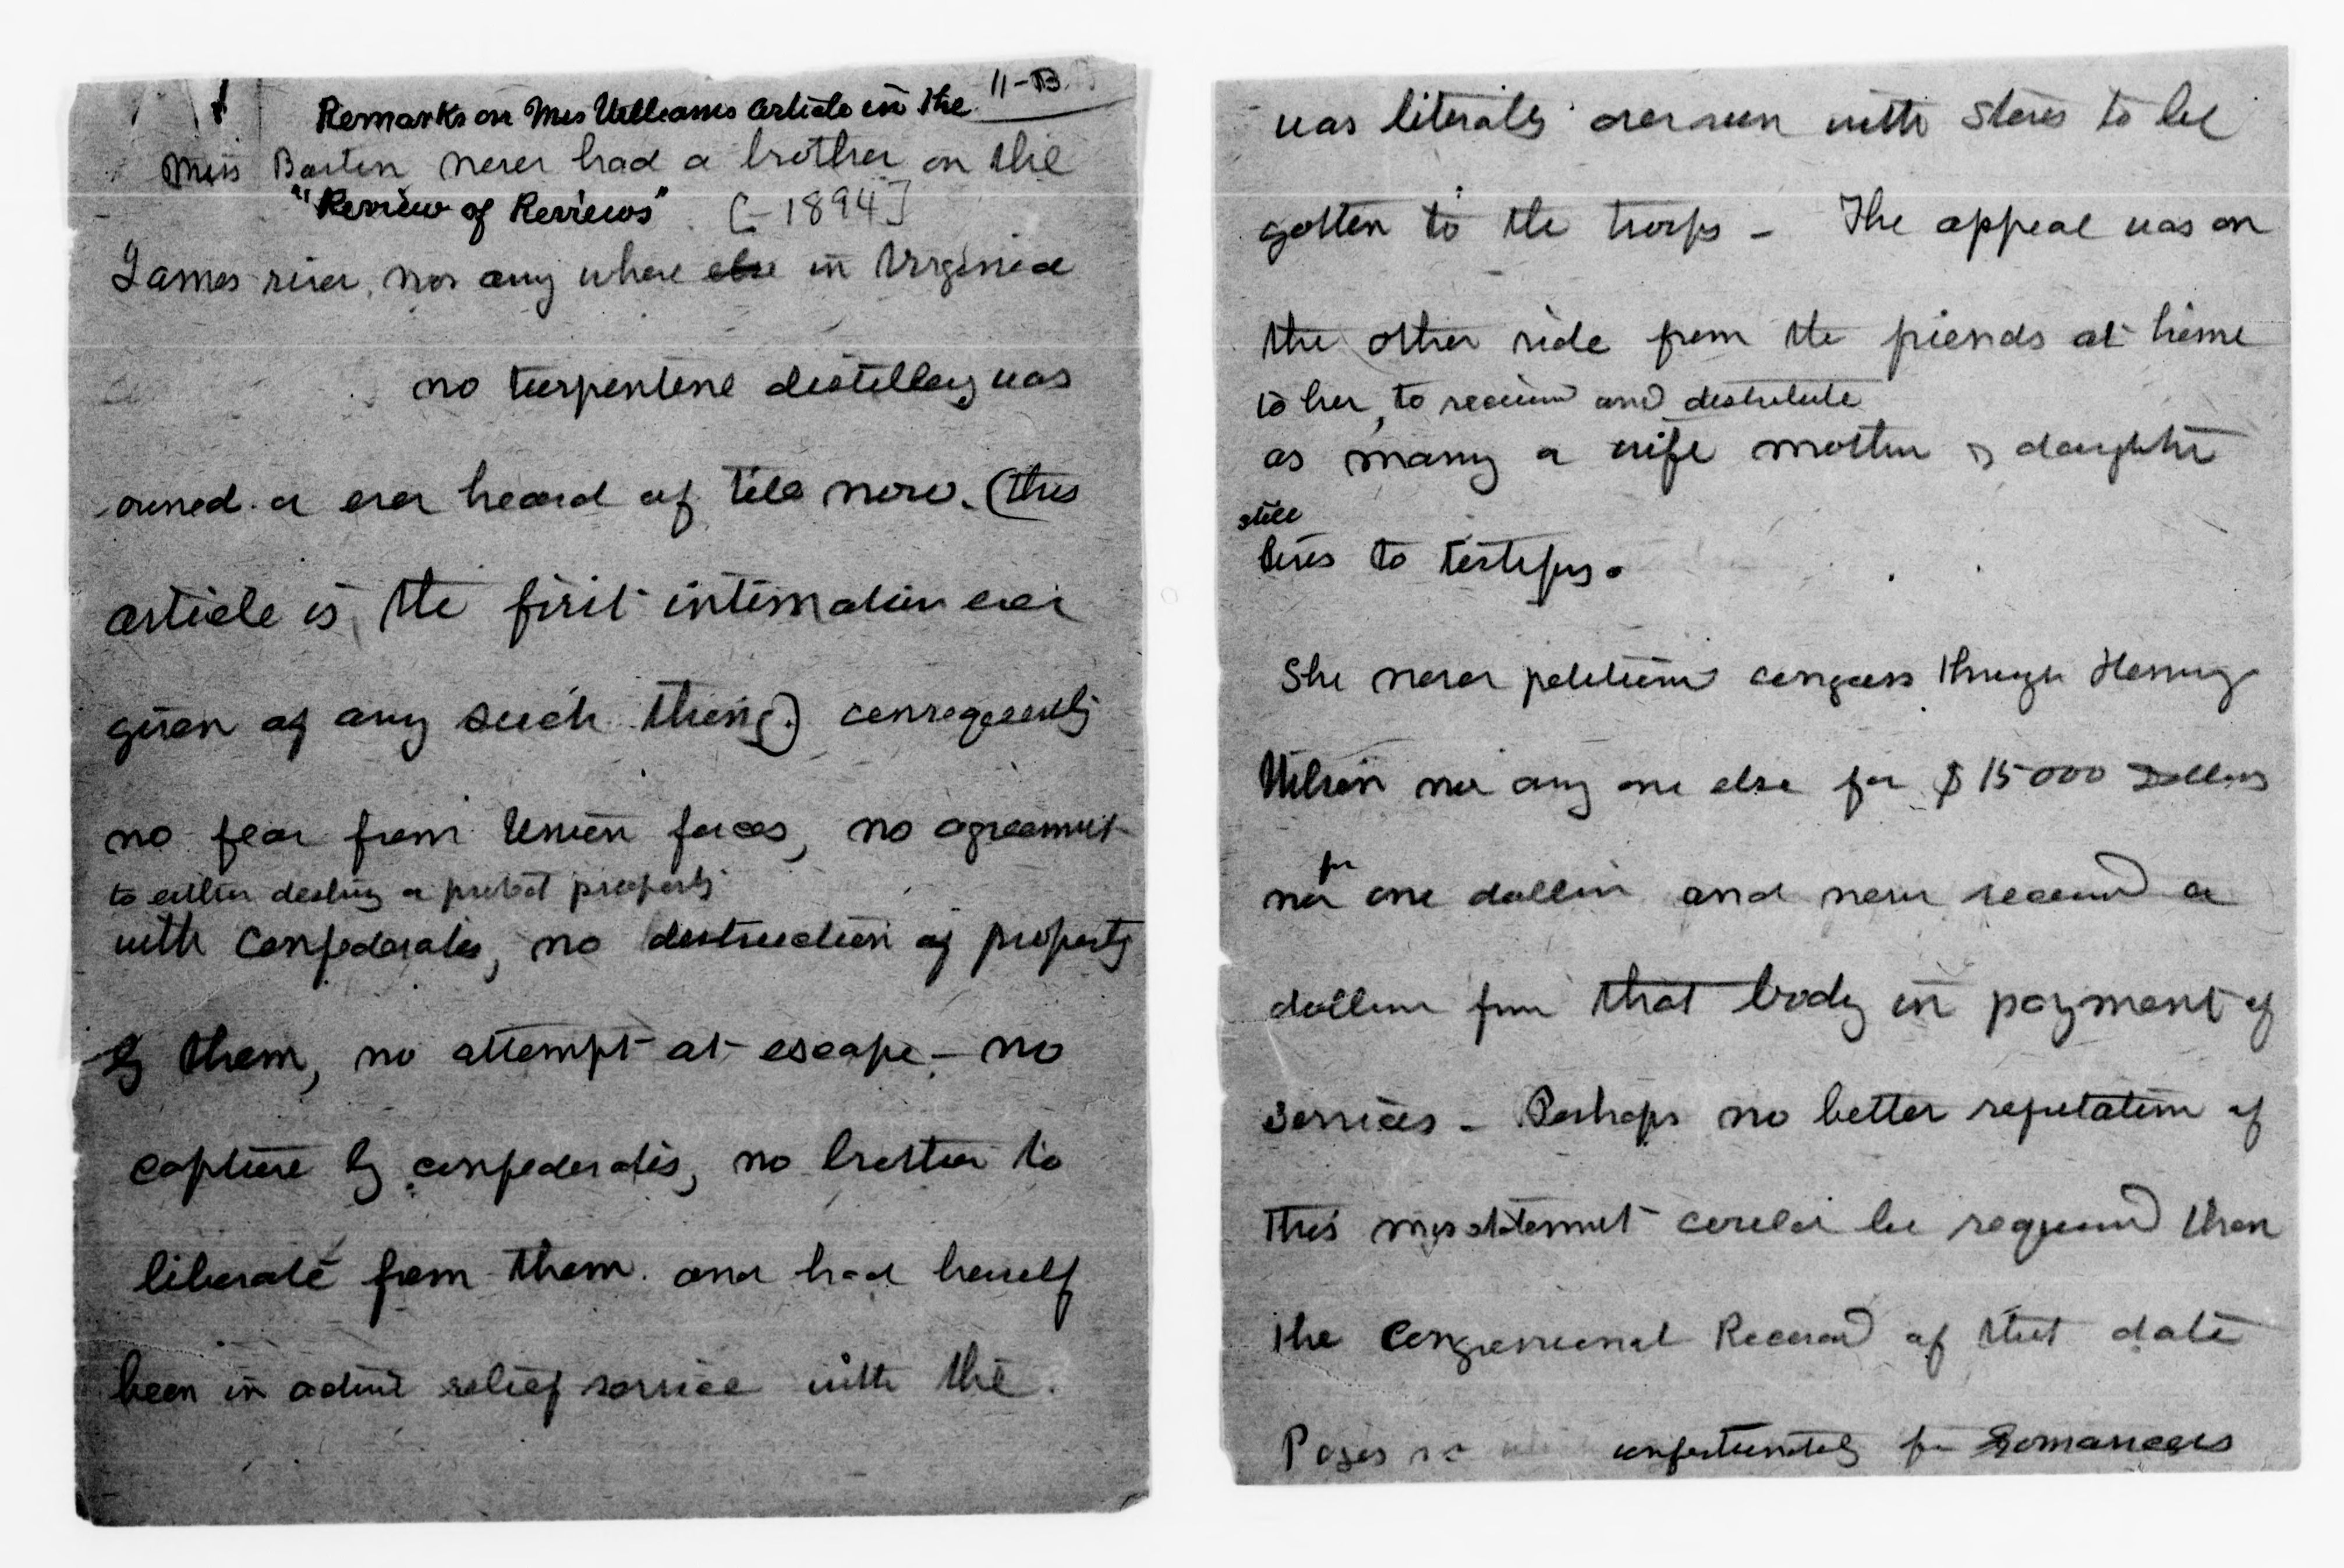 11-B.
Remarks on Mrs Williams Article in the
Miss Barton never had a brother on the
"Review of Reviews" [-1894]
James river, nor any where else in Virginia
no turpentine distillery was
owned or ever heard of till now. (this
article is the first intimation ever
given of any such thing.) consequently
no fear from Union forces, no agreement
to either destroy or protect property
with Confederates, no destruction of property
by them, no attempt at escape - no
capture by confederates, no brother to
liberate from them. and had herself
been in active relief service with the

was literally overrun with stores to be
gotten to the troops - The appeal was on
the other side from the friends at home
to her, to receive and distribute
as many a wife mother & daughter
still
lives to testify.
She never petitioned congress through Henry
Wilson nor any one else for $15000 Dollars
for
nor one dollar and never received a
dollar from that body in payment of
services - Perhaps no better refutation of
this misstatement could be required than
the Congressional Record of that date
Pages unfortunately for Romancers